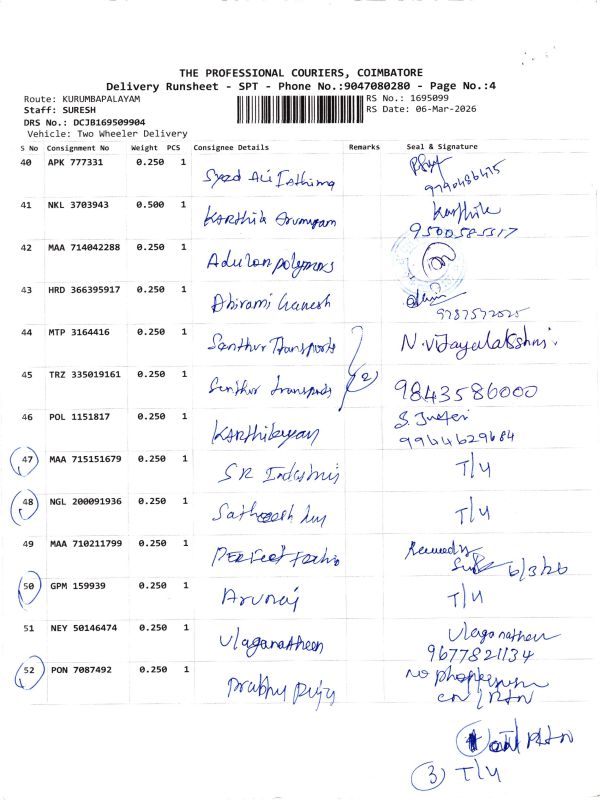 THE PROFESSIONAL COURIERS, COIMBATORE
Delivery Runsheet - SPT - Phone No.:9047080280 - Page No.:4
Route: KURUMBAPALAYAM RS No.: 1695099
Staff: SURESH RS Date: 06-Mar-2026
DRS No.: DCJB169509904
Vehicle: Two Wheeler Delivery
S No Consignment No Weight PCS Consignee Details Remarks Seal & Signature
40 APK 777331 0.250 1 Syed Ali
41 NKL 3703943 0.500 1 Karthik Arumugam Karthik
9500585317
42 MAA 714042288 0.250 1 Aduron polymors
43 HRD 366395917 0.250 1 Abirami Ganesh
9787572025
44 MTP 3164416 0.250 1 Senthur Transports N. Vijayalakshmi.
45 TRZ 335019161 0.250 1 Senthur Transports (2) 9843586000
46 POL 1151817 0.250 1 Karthikeyan
9964629684
47 MAA 715151679 0.250 1 SR Industries T/4
48 NGL 200091936 0.250 1 Satheesh T/4
49 MAA 710211799 0.250 1 Perfect
6/3/26
50 GPM 159939 0.250 1 Arunraj T/4
51 NEY 50146474 0.250 1 Ulaganatheen Ulaganatheen
9677821134
52 PON 7087492 0.250 1 Prabhu no
CN / Rtn
Rtn
(3) T/4